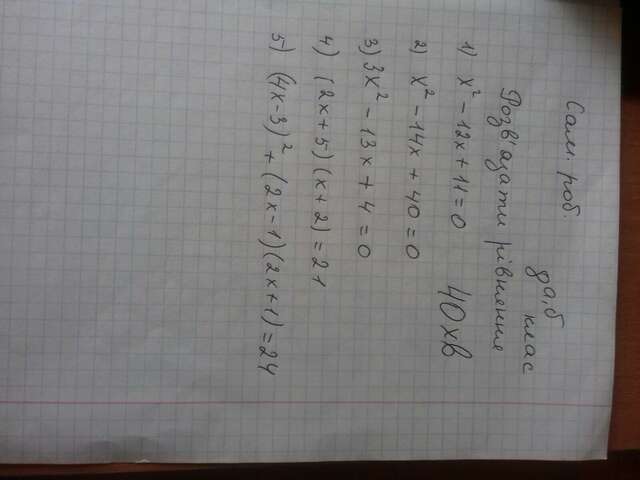 Сам. роб.
8а,б клас
Розв'язати рівняння
1) x² - 12x + 11 = 0
40хв
2) x² - 14x + 40 = 0
3) 3x² - 13x + 4 = 0
4) (2x + 5)(x + 2) = 21
5) (4x - 3)² + (2x - 1)(2x + 1) = 24